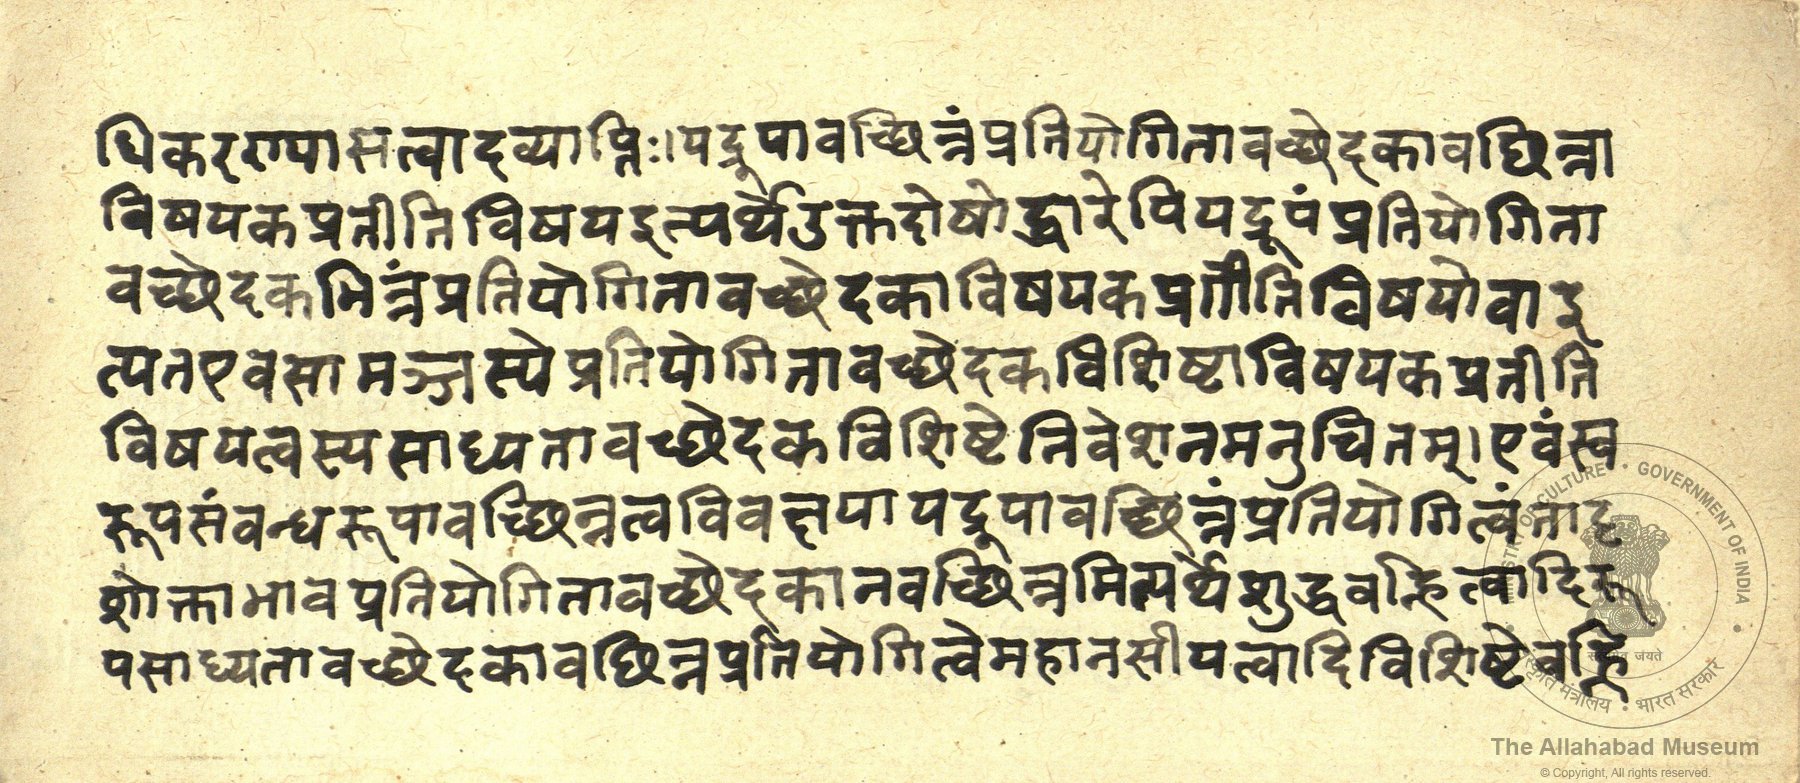 धिकरणपासत्वादव्याप्तिः।यद्रूपावच्छिन्नंप्रतियोगितावच्छेदकावछिन्ना
विषयकप्रतीतिविषयइत्यर्थेउक्तदोषोद्धारेपियद्रूपंप्रतियोगिता
वच्छेदकभिन्नंप्रतियोगितावच्छेदकाविषयकप्रतीतिविषयोवाइ
त्यतएवसामञ्जस्येप्रतियोगितावच्छेदकविशिष्टाविषयकप्रतीति
विषयत्वस्यसाध्यतावच्छेदकविशिष्टेनिवेशनमनुचितम्।एवंस्व
रूपसंवन्धरूपावच्छिन्नत्वविवक्षयायद्रूपावच्छिन्नंप्रतियोगित्वंतादृ
शोक्ताभावप्रतियोगितावच्छेदकानवच्छिन्नमित्यर्थेशुद्धवह्नित्वादिरू
पसाध्यतावच्छेदकावछिन्नप्रतियोगित्वेमहानसीयत्वादिविशिष्टेवह्नि
MINISTRY OF CULTURE • GOVERNMENT OF INDIA
सत्यमेव जयते
संस्कृति मंत्रालय • भारत सरकार
The Allahabad Museum
© Copyright, All rights reserved.